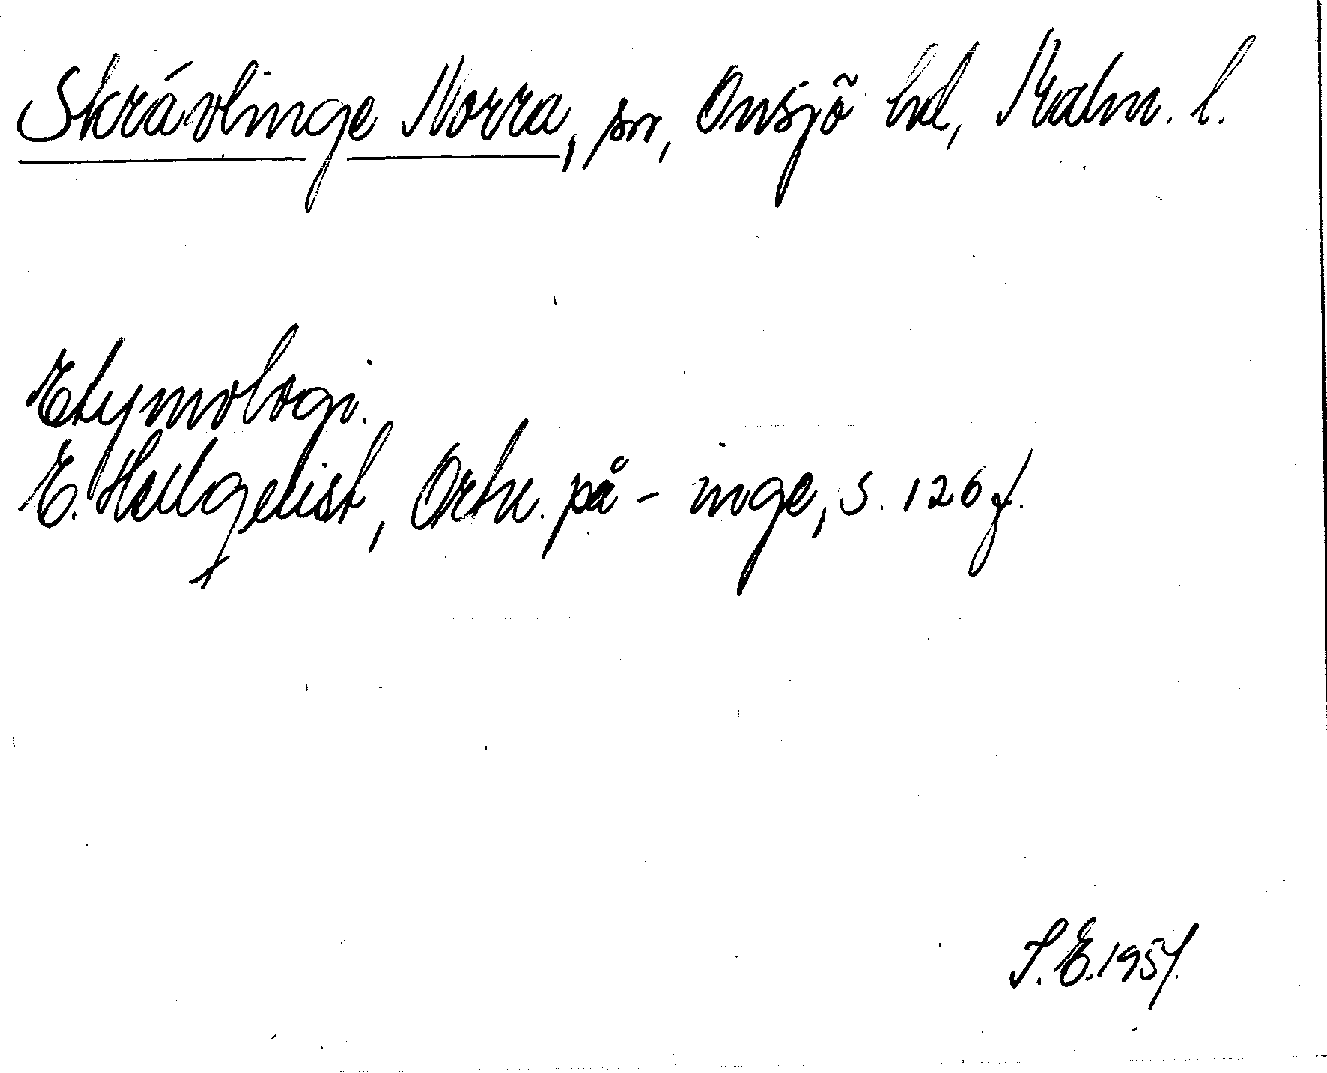 Skrävlinge Norra, sn, Onsjö hd, Malm. l.
Etymologi.
E. Hellquist, Ortn. på - inge, s. 126 f.
S. E. 1951.